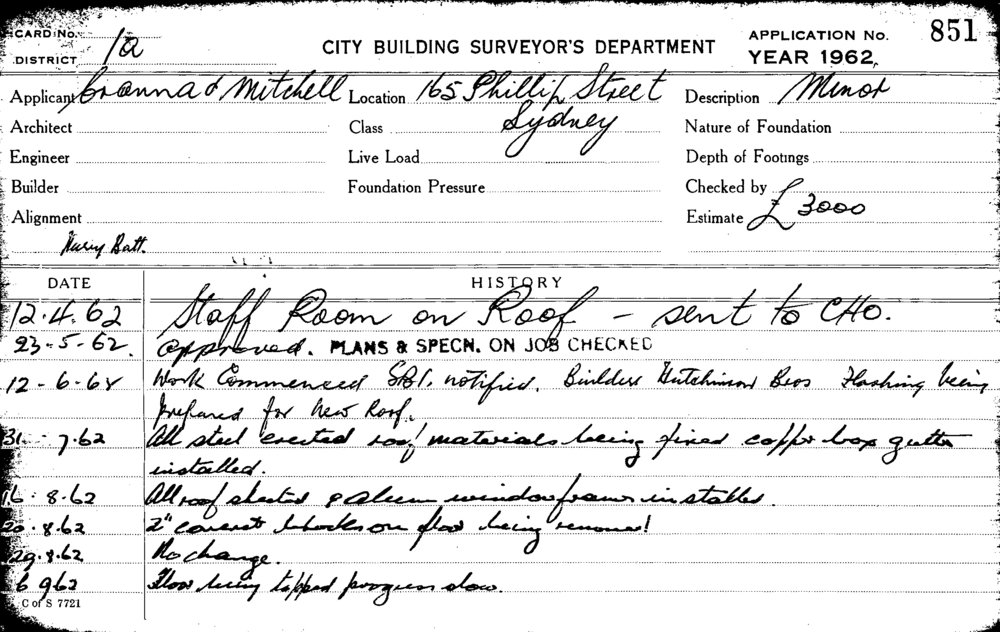 CARD No.
DISTRICT 1a
CITY BUILDING SURVEYOR'S DEPARTMENT
APPLICATION No. 851
YEAR 1962
Applicant Cranna & Mitchell Location 165 Phillip Street Description Minor
Architect Class Sydney Nature of Foundation
Engineer Live Load Depth of Footings
Builder Foundation Pressure Checked by
Alignment Estimate £3000
Batt.
DATE HISTORY
12.4.62 Staff Room on Roof - sent to CHO.
23-5-62. approved. PLANS & SPECN. ON JOB CHECKED
12-6-62 Work Commenced notified. Builders Hutchinson Bros Flashing being
prepared for new Roof.
31.7.62 All steel erected roof materials being fixed copper box gutter
installed.
16.8.62 All roof sheeted & alum window frames installed.
20.8.62 2" concrete blocks on floor being removed
29.8.62 No change.
6 9 62 Floor being topped progress slow.
C of S 7721